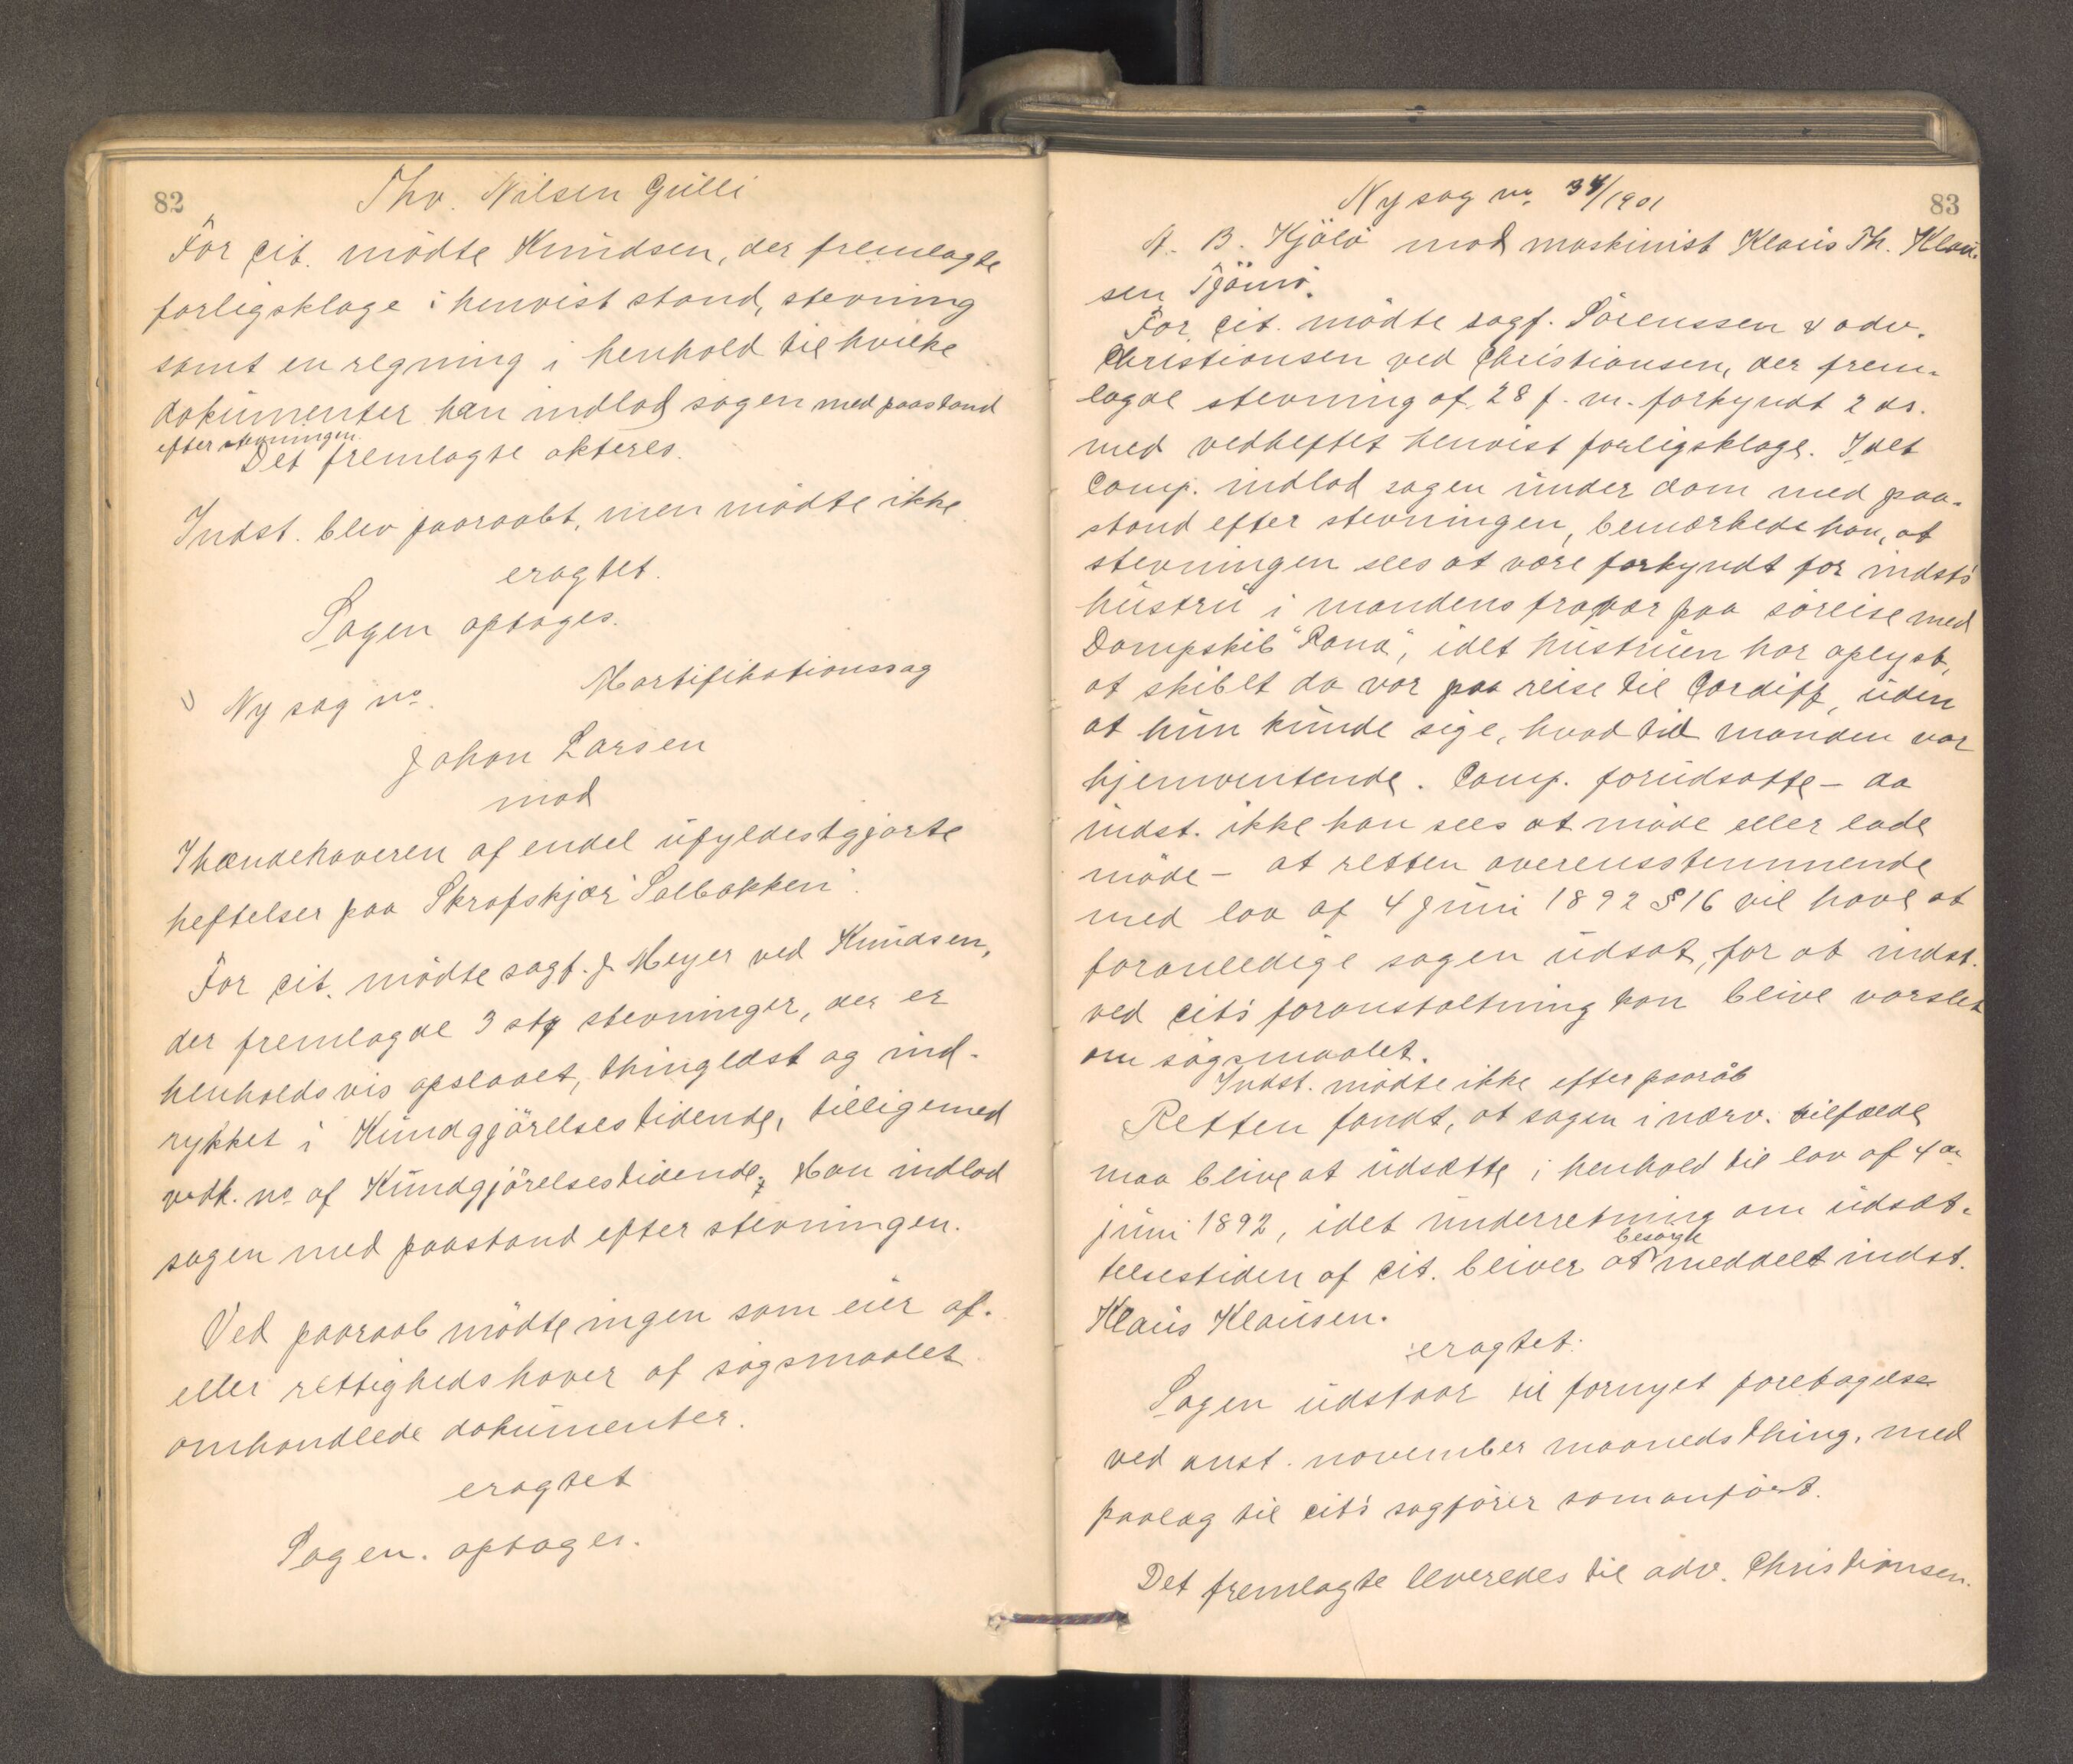 82
Thv. Nilsen Gulli
For cit. mödte Knudsen, der fremlagte
forligsklage i henvist stand, stevning
samt en regning i henhold til hvilke
dokumenter han indlod sagen med paastand
efter stevningen.
Det fremlagte akteres.
Indst. blev paaraabt, men mödte ikke
eragtet.
Sagen optages.
Ny sag no. Mortifikationssag
Johan Larsen
mod
Ihændehaveren af endel ufyldestgjorte
heftelser paa Skrafskjær "Solbakken".
For cit. mödte sagf. J. Meyer ved Knudsen,
der fremlagde 3 stk stevninger, der er
henholdsvis opslaaet, thinglæst og ind-
rykket i Kundgjörelsestidende, tilligemed
vedk. no af Kundgjörelsestidende. Han indlod
sagen med paastand efter stevningen.
Ved paaraab mödte ingen som eier af.
eller rettighedshaver af sögsmaalet
omhandlede dokumenter.
eragtet
Sagen. optages.
83
Ny sag no. 34/1901
A. B. Kjölö mod maskinist Klaus Th. Klau-
sen Tjömö.
For cit. mödte sagf. Sörenssen & adv.
Christiansen ved Christiansen, der frem-
lagde stevning af 28 f. m. forkyndt 2 ds.
med vedheftet henvist forligsklage. Idet
Comp. indlod sagen under dom med paa-
stand efter stevningen, bemærkede han, at
stevningen sees at være forkyndt for indst's
hustru i mandens fravær paa söreise med
Dampskib "Rana", idet hustruen har oplyst,
at skibet da var paa reise til Cardiff, uden
at hun kunde sige, hvad tid manden var
hjemventende. Comp. forudsatte – da
indst. ikke kan sees at möde eller lade
möde – at retten overensstemmende
med lov af 4 juni 1892 § 16 vil have at
foranledige sagen udsat, for at indst.
ved cit's foranstaltning kan blive varslet
om sögsmaalet.
Indst. mödte ikke efter paaråb
Retten fandt, at sagen i nærv. tilfælde
maa blive at udsætte i henhold til lov af 4de
juni 1892, idet underretning om udsæt-
telsestiden af cit. bliver at besörge meddelt indst.
Klaus Klausen.
eragtet:
Sagen udstaar til fornyet foretagelse
ved anst. november maanedsthing, med
paalæg til cit's sagförer som anfört.
Det fremlagte leveredes til adv. Christiansen.